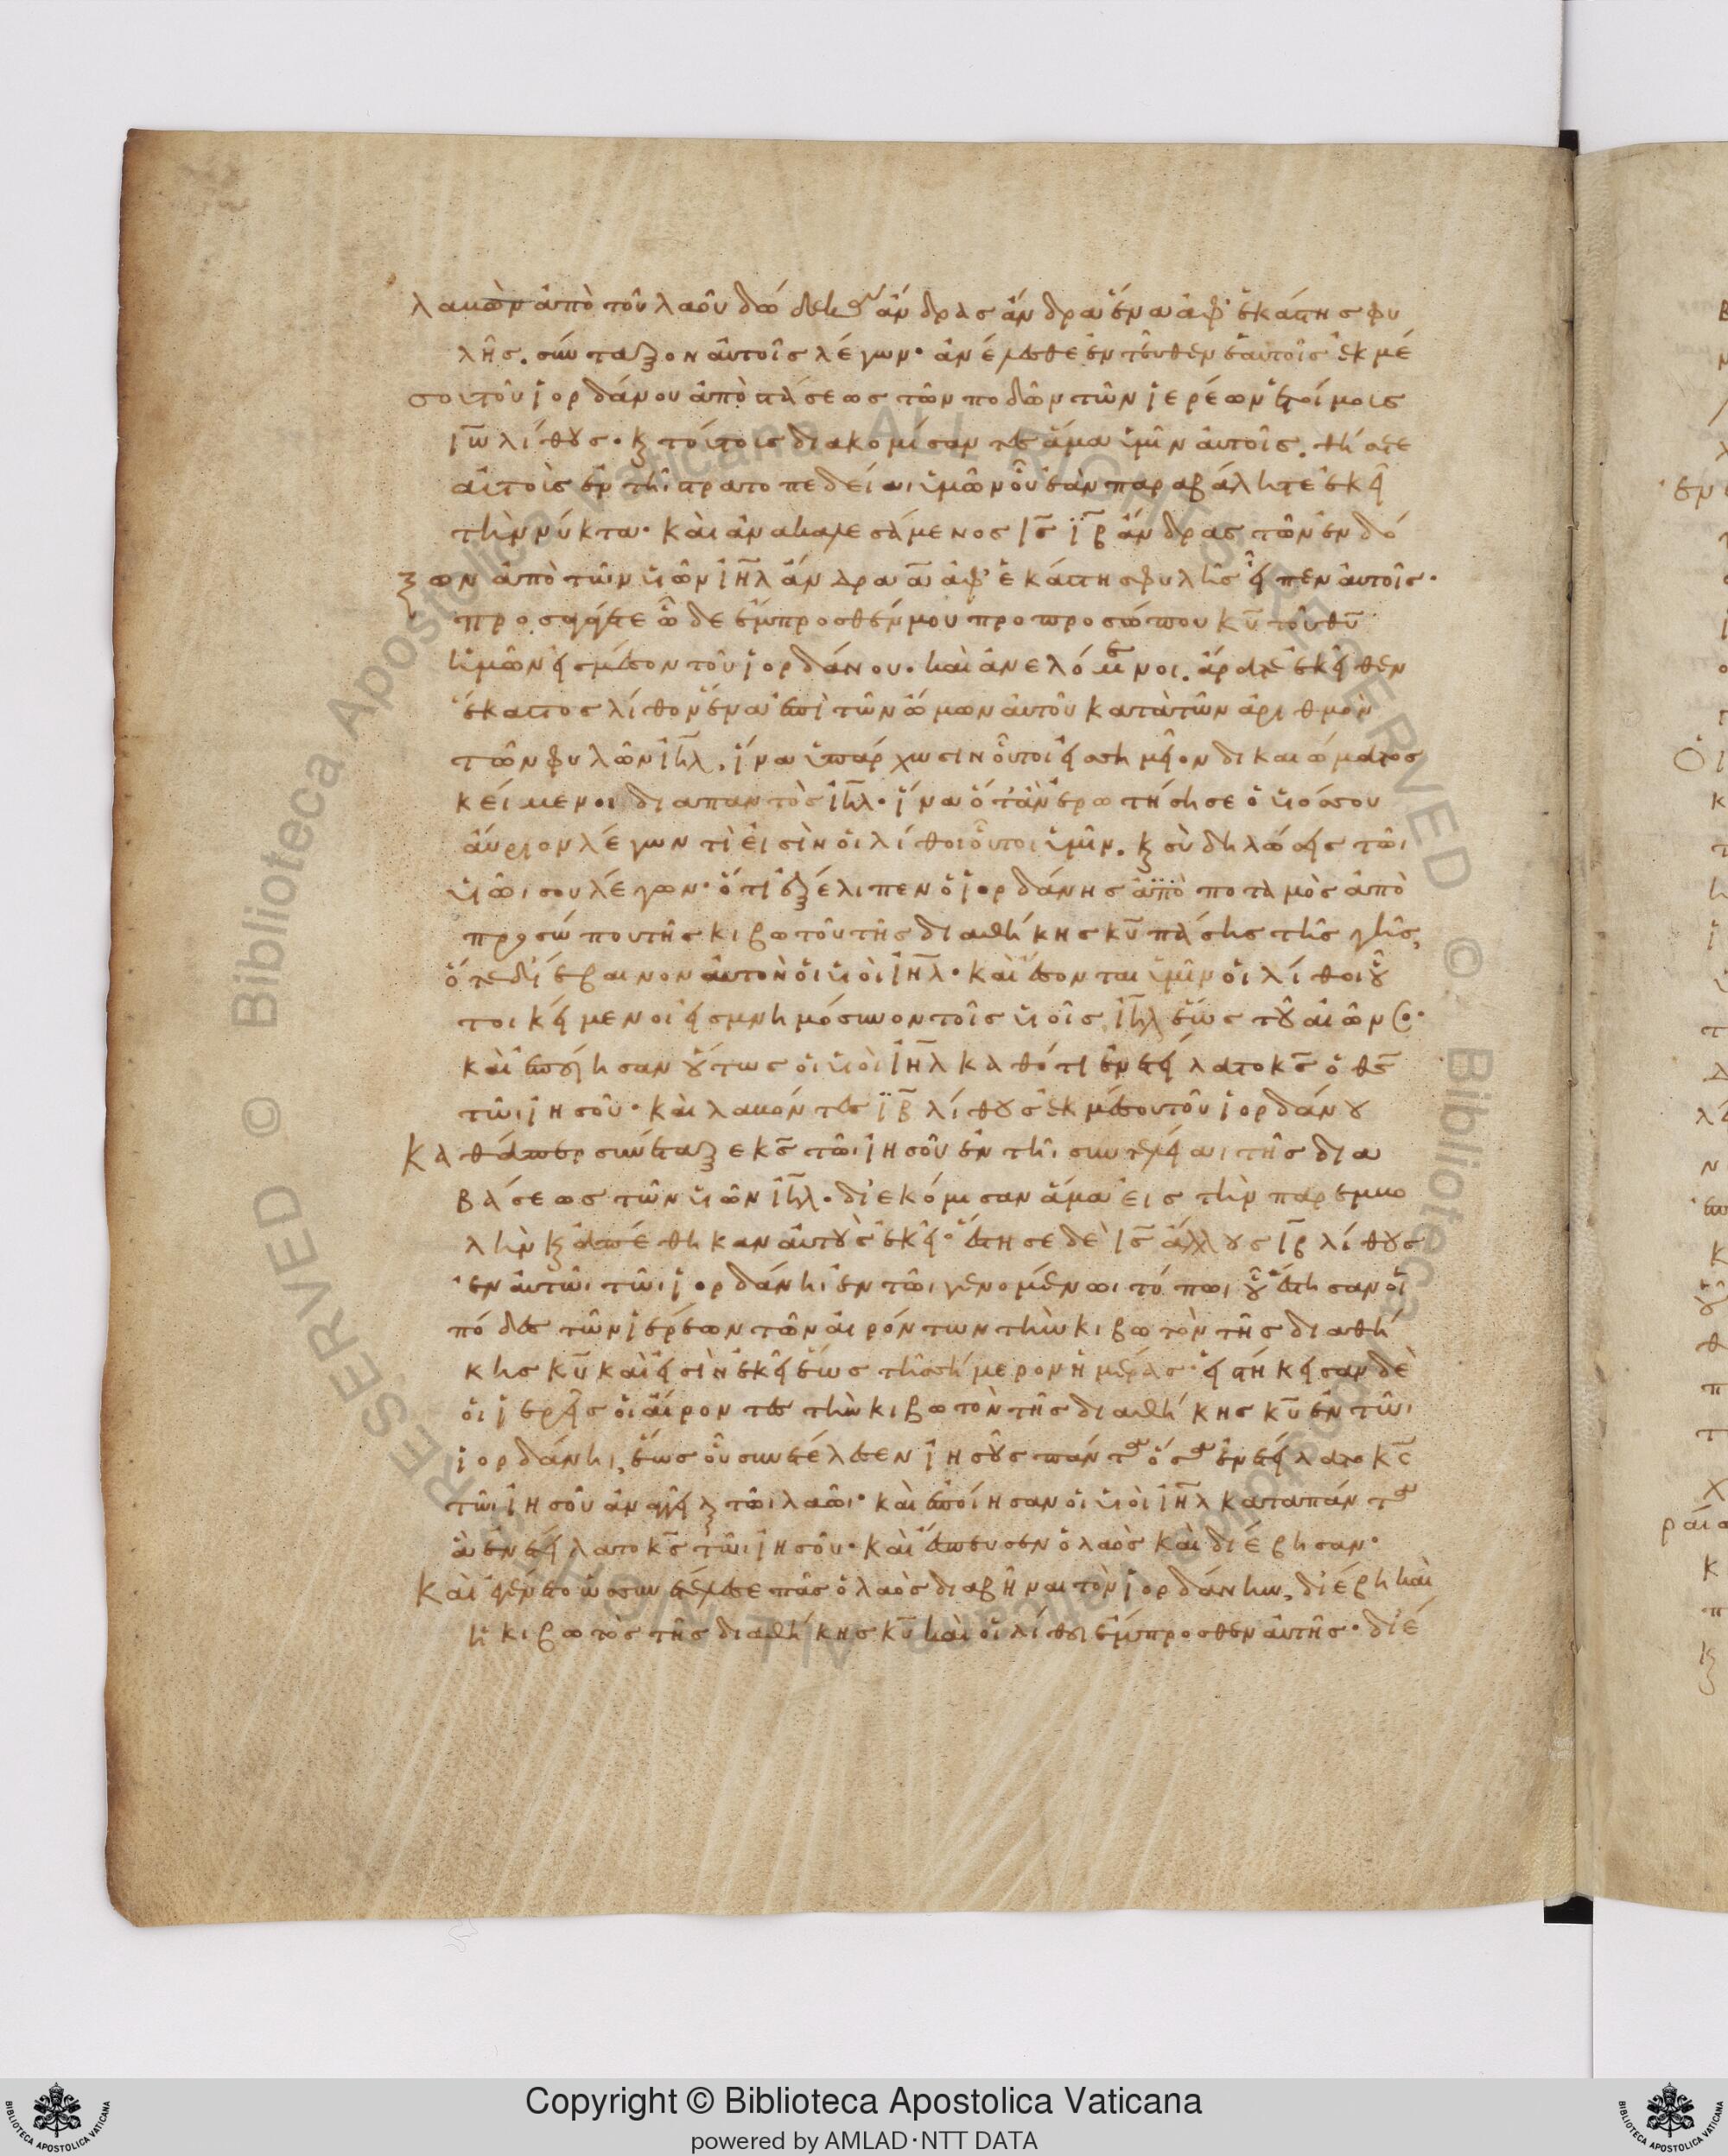 λαβὼν ἀπὸ τοῦ λαοῦ δώδεκα ἄνδρας ἄνδρα ἕνα ἀφ' ἑκάστης φυ
λῆς. σύνταξον αὐτοῖς λέγων· ἀνέλεσθε ἐντεῦθεν ἑαυτοῖς ἐκ μέ
σου τοῦ ἰορδάνου ἀπὸ στάσεως τῶν ποδῶν τῶν ἱερέων ἑτοίμους
ιβ λίθους· καὶ τούτους διακομίσαντες ἅμα ὑμῖν αὐτοῖς. θήσετε
αὐτοὺς ἐν τῆι στρατοπεδείαι ὑμῶν οὗ ἐὰν παραβάλητε ἐκεῖ
τὴν νύκτα· καὶ ἀνακαλεσάμενος ις ιβ ἄνδρας τῶν ἐνδό
ξων ἀπὸ τῶν υἱῶν ιηλ ἄνδρα α ἀφ' ἑκάστης φυλῆς εἶπεν αὐτοῖς·
προσαγάγετε ὧδε ἔμπροσθέν μου πρὸ προσώπου κυ τοῦ θυ
ἡμῶν εἰς μέσον τοῦ ἰορδάνου· καὶ ἀνελόμενοι. ἄρατε ἐκεῖθεν
ἕκαστος λίθον ἕνα ἐπὶ τῶν ὤμων αὐτοῦ κατὰ τῶν ἀριθμὸν
τῶν φυλῶν ιηλ. ἵνα ὑπάρχωσιν οὗτοι εἰς σημεῖον δικαιώματος
κείμενοι διαπαντὸς ιηλ· ἵνα ὅταν ἐρωτήσῃ σε ὁ υἱός σου
αὔριον λέγων τί εἰσὶν οἱ λίθοι οὗτοι ὑμῖν. καὶ σὺ δηλώσεις τῶι
υἱῶι σου λέγων· ὅτι ἐξέλιπεν ὁ ἰορδάνης ἀπὸ ποταμὸς ἀπὸ
προσώπου τῆς κιβωτοῦ τῆς διαθήκης κυ πάσης τῆς γῆς,
ὅτε διέβαινον αὐτὸν οἱ υἱοὶ ιηλ· καὶ ἔσονται ὑμῖν οἱ λίθοι οὗ
τοι κείμενοι εἰς μνημόσυνον τοῖς υἱοῖς ιηλ ἕως τοῦ αἰῶνος·
καὶ ἐποίησαν οὕτως οἱ υἱοὶ ιηλ καθότι ἐνετείλατο κς ὁ θς
τῶι ἰησοῦ· καὶ λαβόντες ιβ λίθους ἐκ μέσου τοῦ ἰορδάνου
Καθάπερ συνέταξε κς τῶι ἰησοῦ ἐν τῆι συντελείαι τῆς δια
βάσεως τῶν υἱῶν ιηλ. διεκόμισαν ἅμα εἰς τὴν παρεμβο
λὴν καὶ ἀπέθηκαν αὐτοὺς ἐκεῖ· ἔστησε δὲ ις ἄλλους ιβ λίθους
ἐν αὐτῶι τῶι ἰορδάνηι ἐν τῶι γενομένωι τόπωι οὗ ἔστησαν οἱ
πόδες τῶν ἱερέων τῶν αἰρόντων τὴν κιβωτὸν τῆς διαθή
κης κυ καὶ εἰσὶν ἐκεῖ ἕως τῆς σήμερον ἡμέρας· εἱστήκεισαν δὲ
οἱ ἱερεῖς οἱ αἴροντες τὴν κιβωτὸν τῆς διαθήκης κυ ἐν τῶι
ἰορδάνηι, ἕως οὗ συνετέλεσεν ἰησοῦς πάντα ὅσα ἐνετείλατο κς
τῶι ἰησοῦ ἀναγγεῖλαι τῶι λαῶι· καὶ ἐποίησαν οἱ υἱοὶ ιηλ κατα πάντα
ἃ ἐνετείλατο κς τῶι ἰησοῦ· καὶ ἔσπευσεν ὁ λαὸς καὶ διέβησαν·
Καὶ ἐγένετο ὡς συνετέλεσε πᾶς ὁ λαὸς διαβῆναι τὸν ἰορδάνην, διέβη καὶ
ἡ κιβωτὸς τῆς διαθήκης κυ καὶ οἱ λίθοι ἔμπροσθεν αὐτῆς· διέ
Copyright © Biblioteca Apostolica Vaticana
powered by AMLAD·NTT DATA